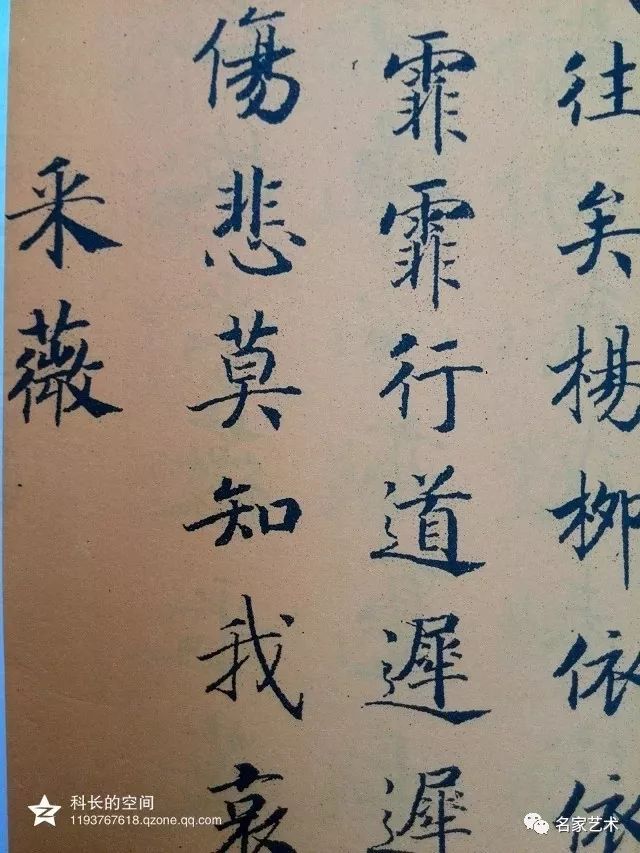 往矣楊柳依依
霏霏行道遲遲
傷悲莫知我哀
采薇
科长的空间
1193767618.qzone.qq.com
名家艺术